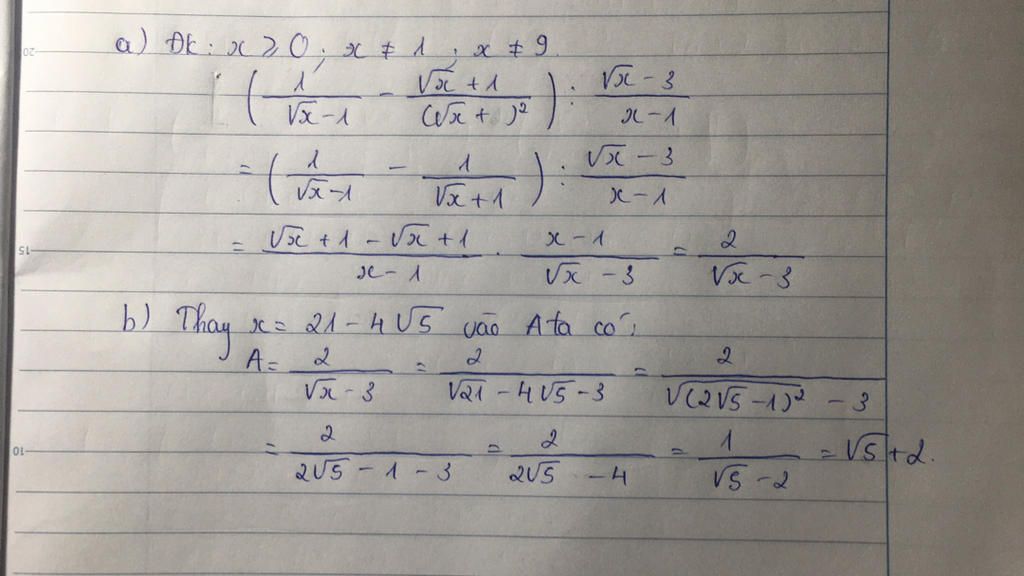 a) Đk : x ⩾ 0 ; x ≠ 1 ; x ≠ 9
(1/(√x − 1) − (√x + 1)/(√x + )²) : (√x − 3)/(x − 1)
= (1/(√x − 1) − 1/(√x + 1)) : (√x − 3)/(x − 1)
= (√x + 1 − √x + 1)/(x − 1) . (x − 1)/(√x − 3) = 2/(√x − 3)
b) Thay x = 21 − 4√5 vào A ta có:
A = 2/(√x − 3) = 2/(√21 − 4√5 − 3) = 2/(√(2√5 − 1)² − 3)
= 2/(2√5 − 1 − 3) = 2/(2√5 − 4) = 1/(√5 − 2) = √5 + 2.
20
15
10